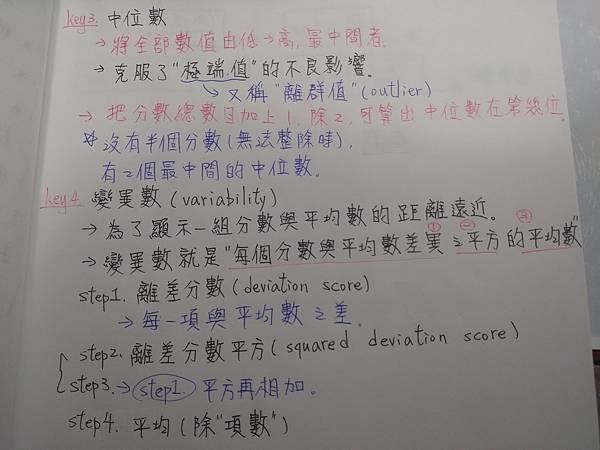 key3. 中位數
→ 將全部數值由低→高,最中間者。
→ 克服了"極端值"的不良影響。
↳ 又稱"離群值"(outlier)
→ 把分數總數目加上1,除2,可算出中位數在第幾位。
* 沒有半個分數(無法整除時),
有2個最中間的中位數。
key4. 變異數(variability)
→ 為了顯示一組分數與平均數的距離遠近。
① ② ③
→ 變異數就是"每個分數與平均數差異之平方的平均數"
step1. 離差分數(deviation score)
→ 每一項與平均數之差。
step2. 離差分數平方(squared deviation score)
step3. → step1. 平方再相加。
step4. 平均(除"項數")